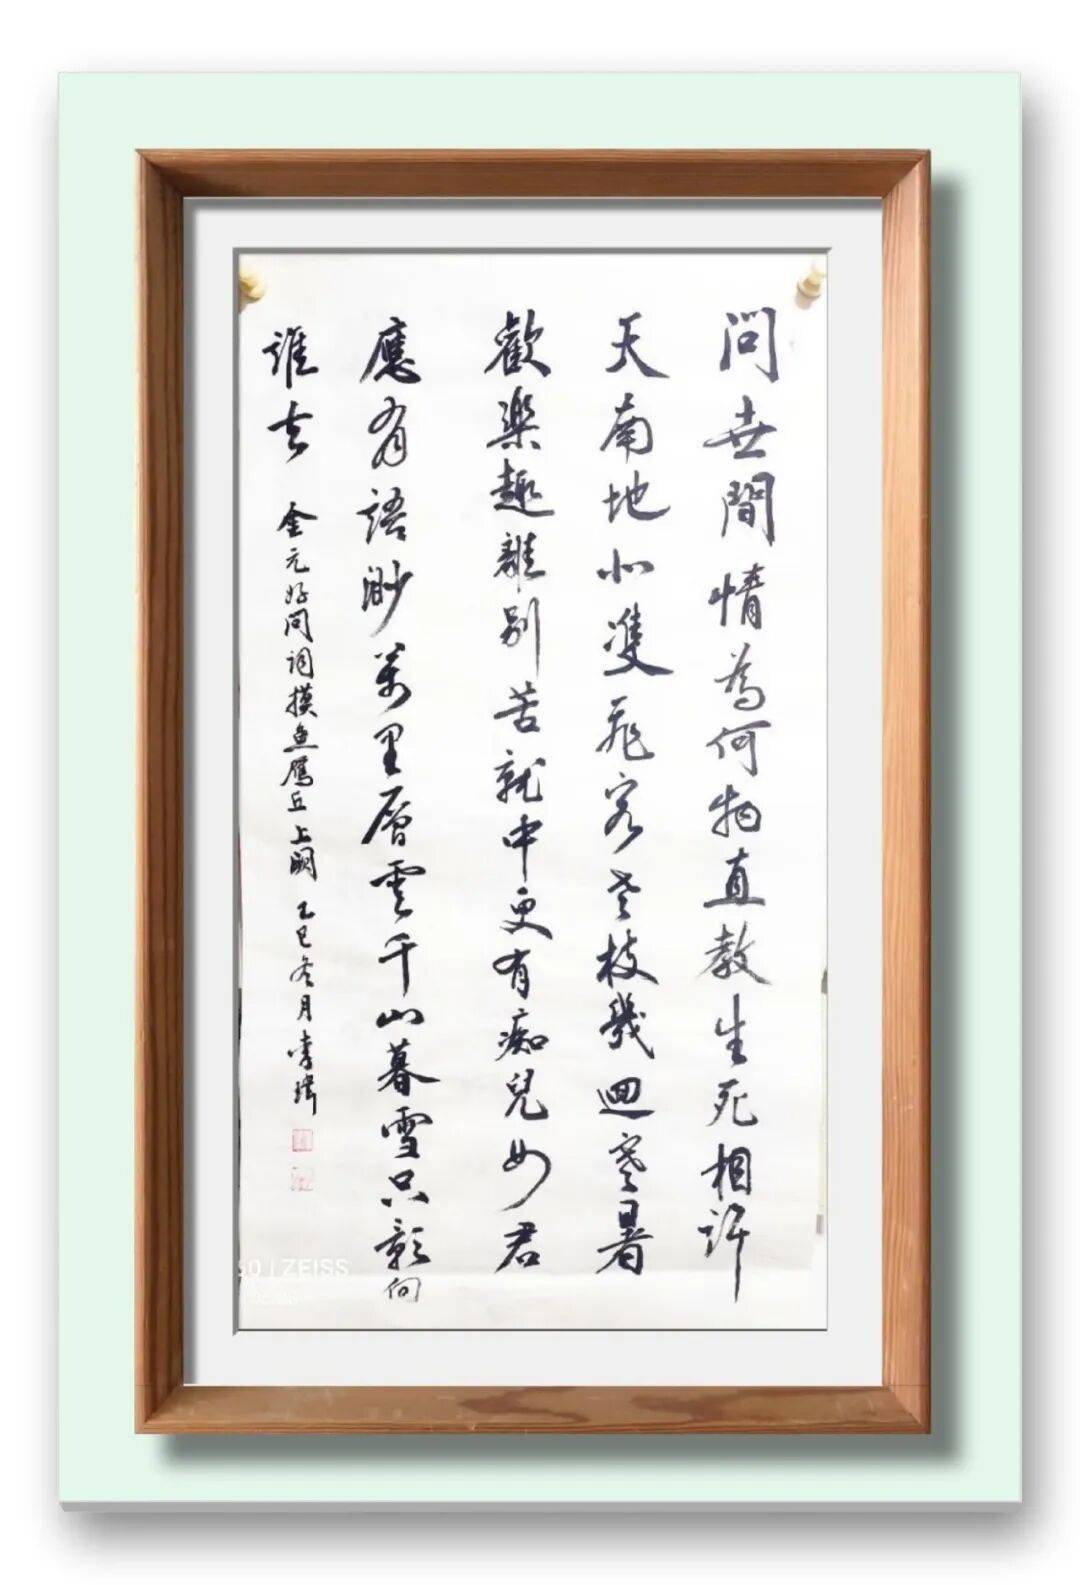 問世間情為何物直教生死相許
天南地北雙飛客老枝幾迴寒暑
歡樂趣離別苦就中更有痴兒女君
應有語渺萬里層雲千山暮雪只影向
誰去
金元好問詞摸魚雁丘上闋 乙巳冬月李瑋
50 | ZEISS